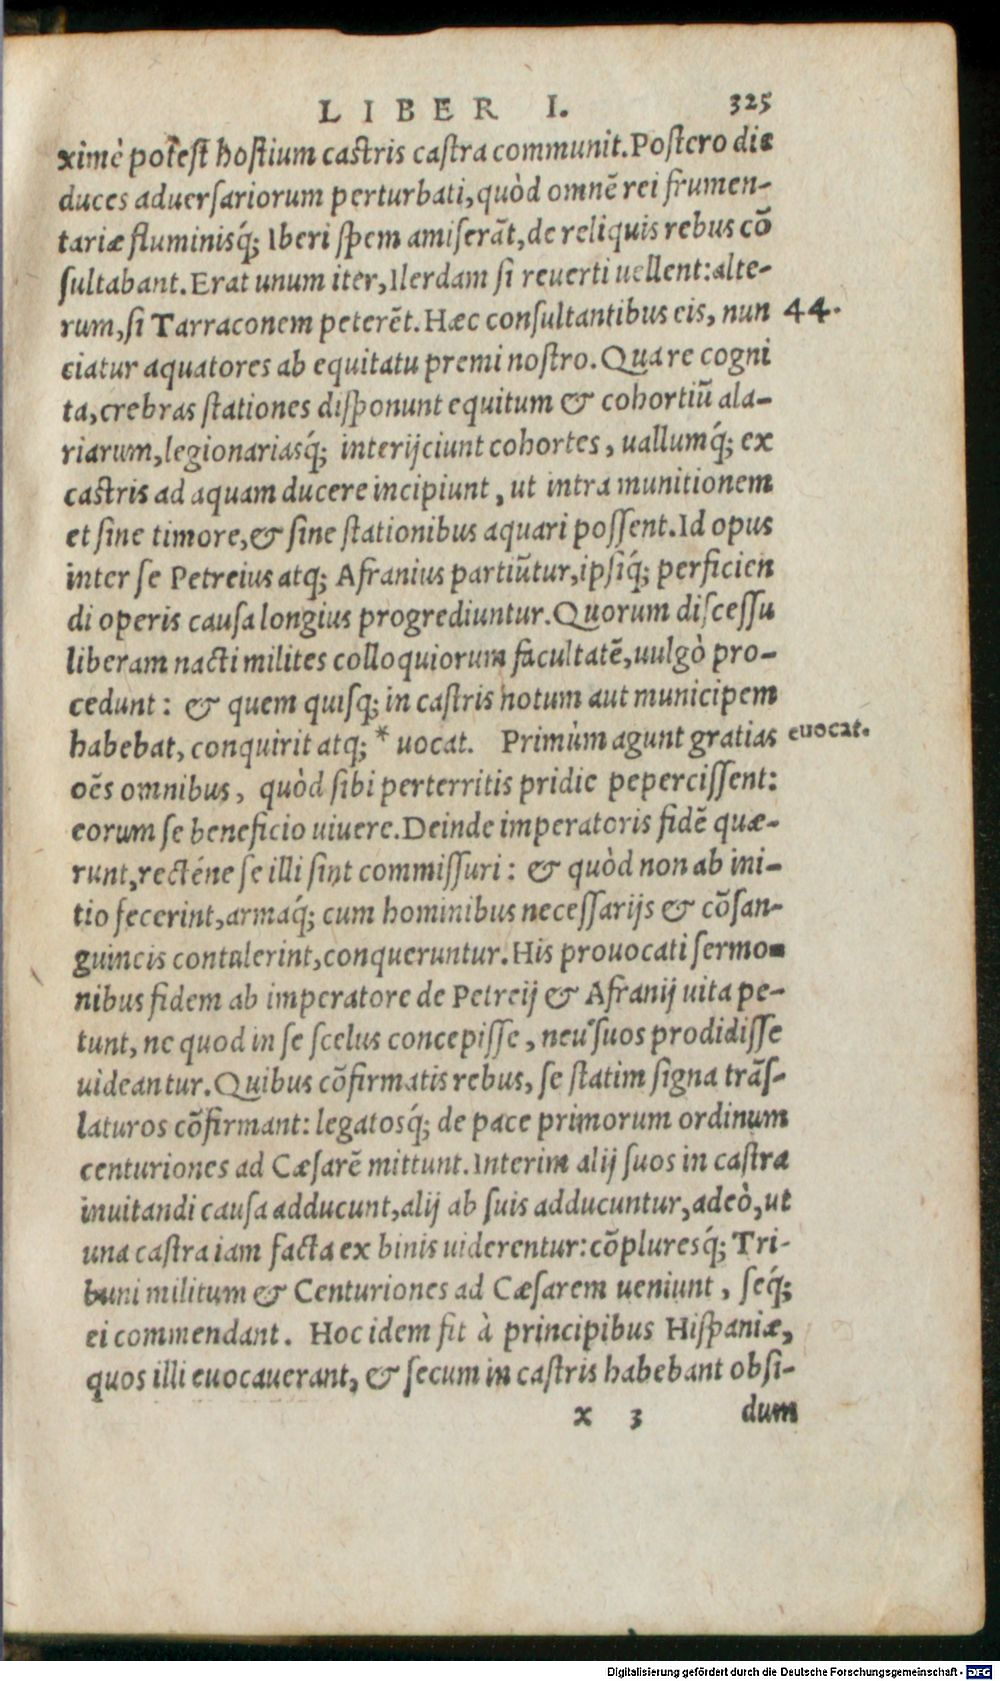 LIBER I. 325
ximè potest hostium castris castra communit. Postero die
duces aduersariorum perturbati, quòd omnẽ rei frumen-
tariæ fluminisq́; Iberi spem amiserãt, de reliquis rebus cõ
sultabant. Erat unum iter, Ilerdam si reuerti uellent: alte-
rum, si Tarraconem peterẽt. Hæc consultantibus eis, nun 44.
ciatur aquatores ab equitatu premi nostro. Qua re cogni
ta, crebras stationes disponunt equitum & cohortiũ ala-
riarum, legionariasq́; interijciunt cohortes, uallumq́; ex
castris ad aquam ducere incipiunt, ut intra munitionem
et sine timore, & sine stationibus aquari possent. Id opus
inter se Petreius atq; Afranius partiũtur, ipsiq́; perficien
di operis causa longius progrediuntur. Quorum discessu
liberam nacti milites colloquiorum facultatẽ, uulgò pro-
cedunt: & quem quisq; in castris notum aut municipem
habebat, conquirit atq; * uocat. Primùm agunt gratias euocat.
oẽs omnibus, quòd sibi perterritis pridie pepercissent:
eorum se beneficio uiuere. Deinde imperatoris fidẽ quæ-
runt, recténe se illi sint commissuri: & quòd non ab ini-
tio fecerint, armaq́; cum hominibus necessarijs & cõsan-
guineis contulerint, conqueruntur. His prouocati sermo-
nibus fidem ab imperatore de Petreij & Afranij uita pe-
tunt, ne quod in se scelus concepisse, neu suos prodidisse
uideantur. Quibus cõfirmatis rebus, se statim signa trãs-
laturos cõfirmant: legatosq́; de pace primorum ordinum
centuriones ad Cæsarẽ mittunt. Interim alij suos in castra
inuitandi causa adducunt, alij ab suis adducuntur, adeò, ut
una castra iam facta ex binis uiderentur: cõpluresq́; Tri-
buni militum & Centuriones ad Cæsarem ueniunt, seq́;
ei commendant. Hoc idem fit à principibus Hispaniæ,
quos illi euocauerant, & secum in castris habebant obsi-
x 3 dum
Digitalisierung gefördert durch die Deutsche Forschungsgemeinschaft - DFG